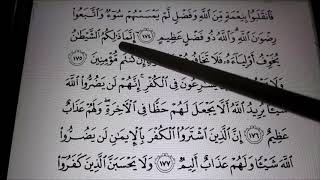 فَٱنقَلَبُوا۟ بِنِعْمَةٍ مِّنَ ٱللَّهِ وَفَضْلٍ لَّمْ يَمْسَسْهُمْ سُوٓءٌ وَٱتَّبَعُوا۟
رِضْوَٰنَ ٱللَّهِ وَٱللَّهُ ذُو فَضْلٍ عَظِيمٍ ١٧٤ إِنَّمَا ذَٰلِكُمُ ٱلشَّيْطَٰنُ
يُخَوِّفُ أَوْلِيَآءَهُۥ فَلَا كُنتُم مُّؤْمِنِينَ ١٧٥
يُسَٰرِعُونَ فِى ٱلْكُفْرِ إِنَّهُمْ لَن يَضُرُّوا۟
ٱللَّهَ شَيْـًٔا يُرِيدُ ٱللَّهُ أَلَّا يَجْعَلَ لَهُمْ حَظًّا فِى ٱلْـَٔاخِرَةِ وَلَهُمْ عَذَابٌ
عَظِيمٌ ١٧٦ إِنَّ ٱلَّذِينَ ٱشْتَرَوُا۟ ٱلْكُفْرَ بِٱلْإِيمَٰنِ لَن يَضُرُّوا۟
ٱللَّهَ شَيْـًٔا وَلَهُمْ عَذَابٌ أَلِيمٌ ١٧٧ وَلَا يَحْسَبَنَّ ٱلَّذِينَ كَفَرُوٓا۟